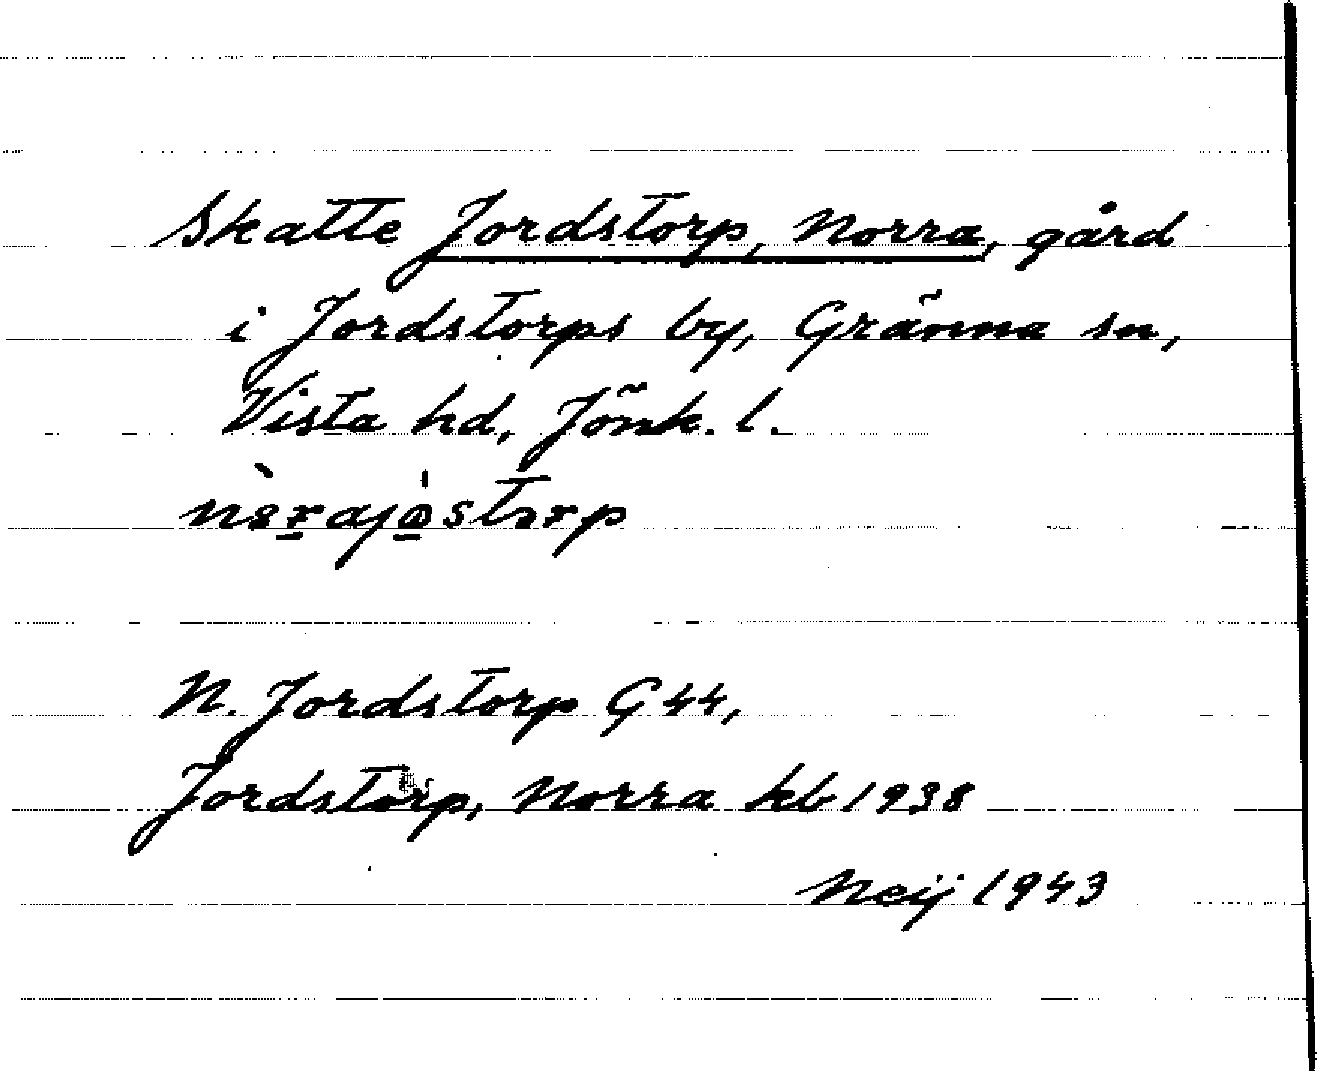 Skatte Jordstorp, Norra, gård
i Jordstorps by, Gränna sn,
Vista hd, Jönk. l.
N. Jordstorp G 44,
Jordstorp, Norra kb 1938
Neij 1943